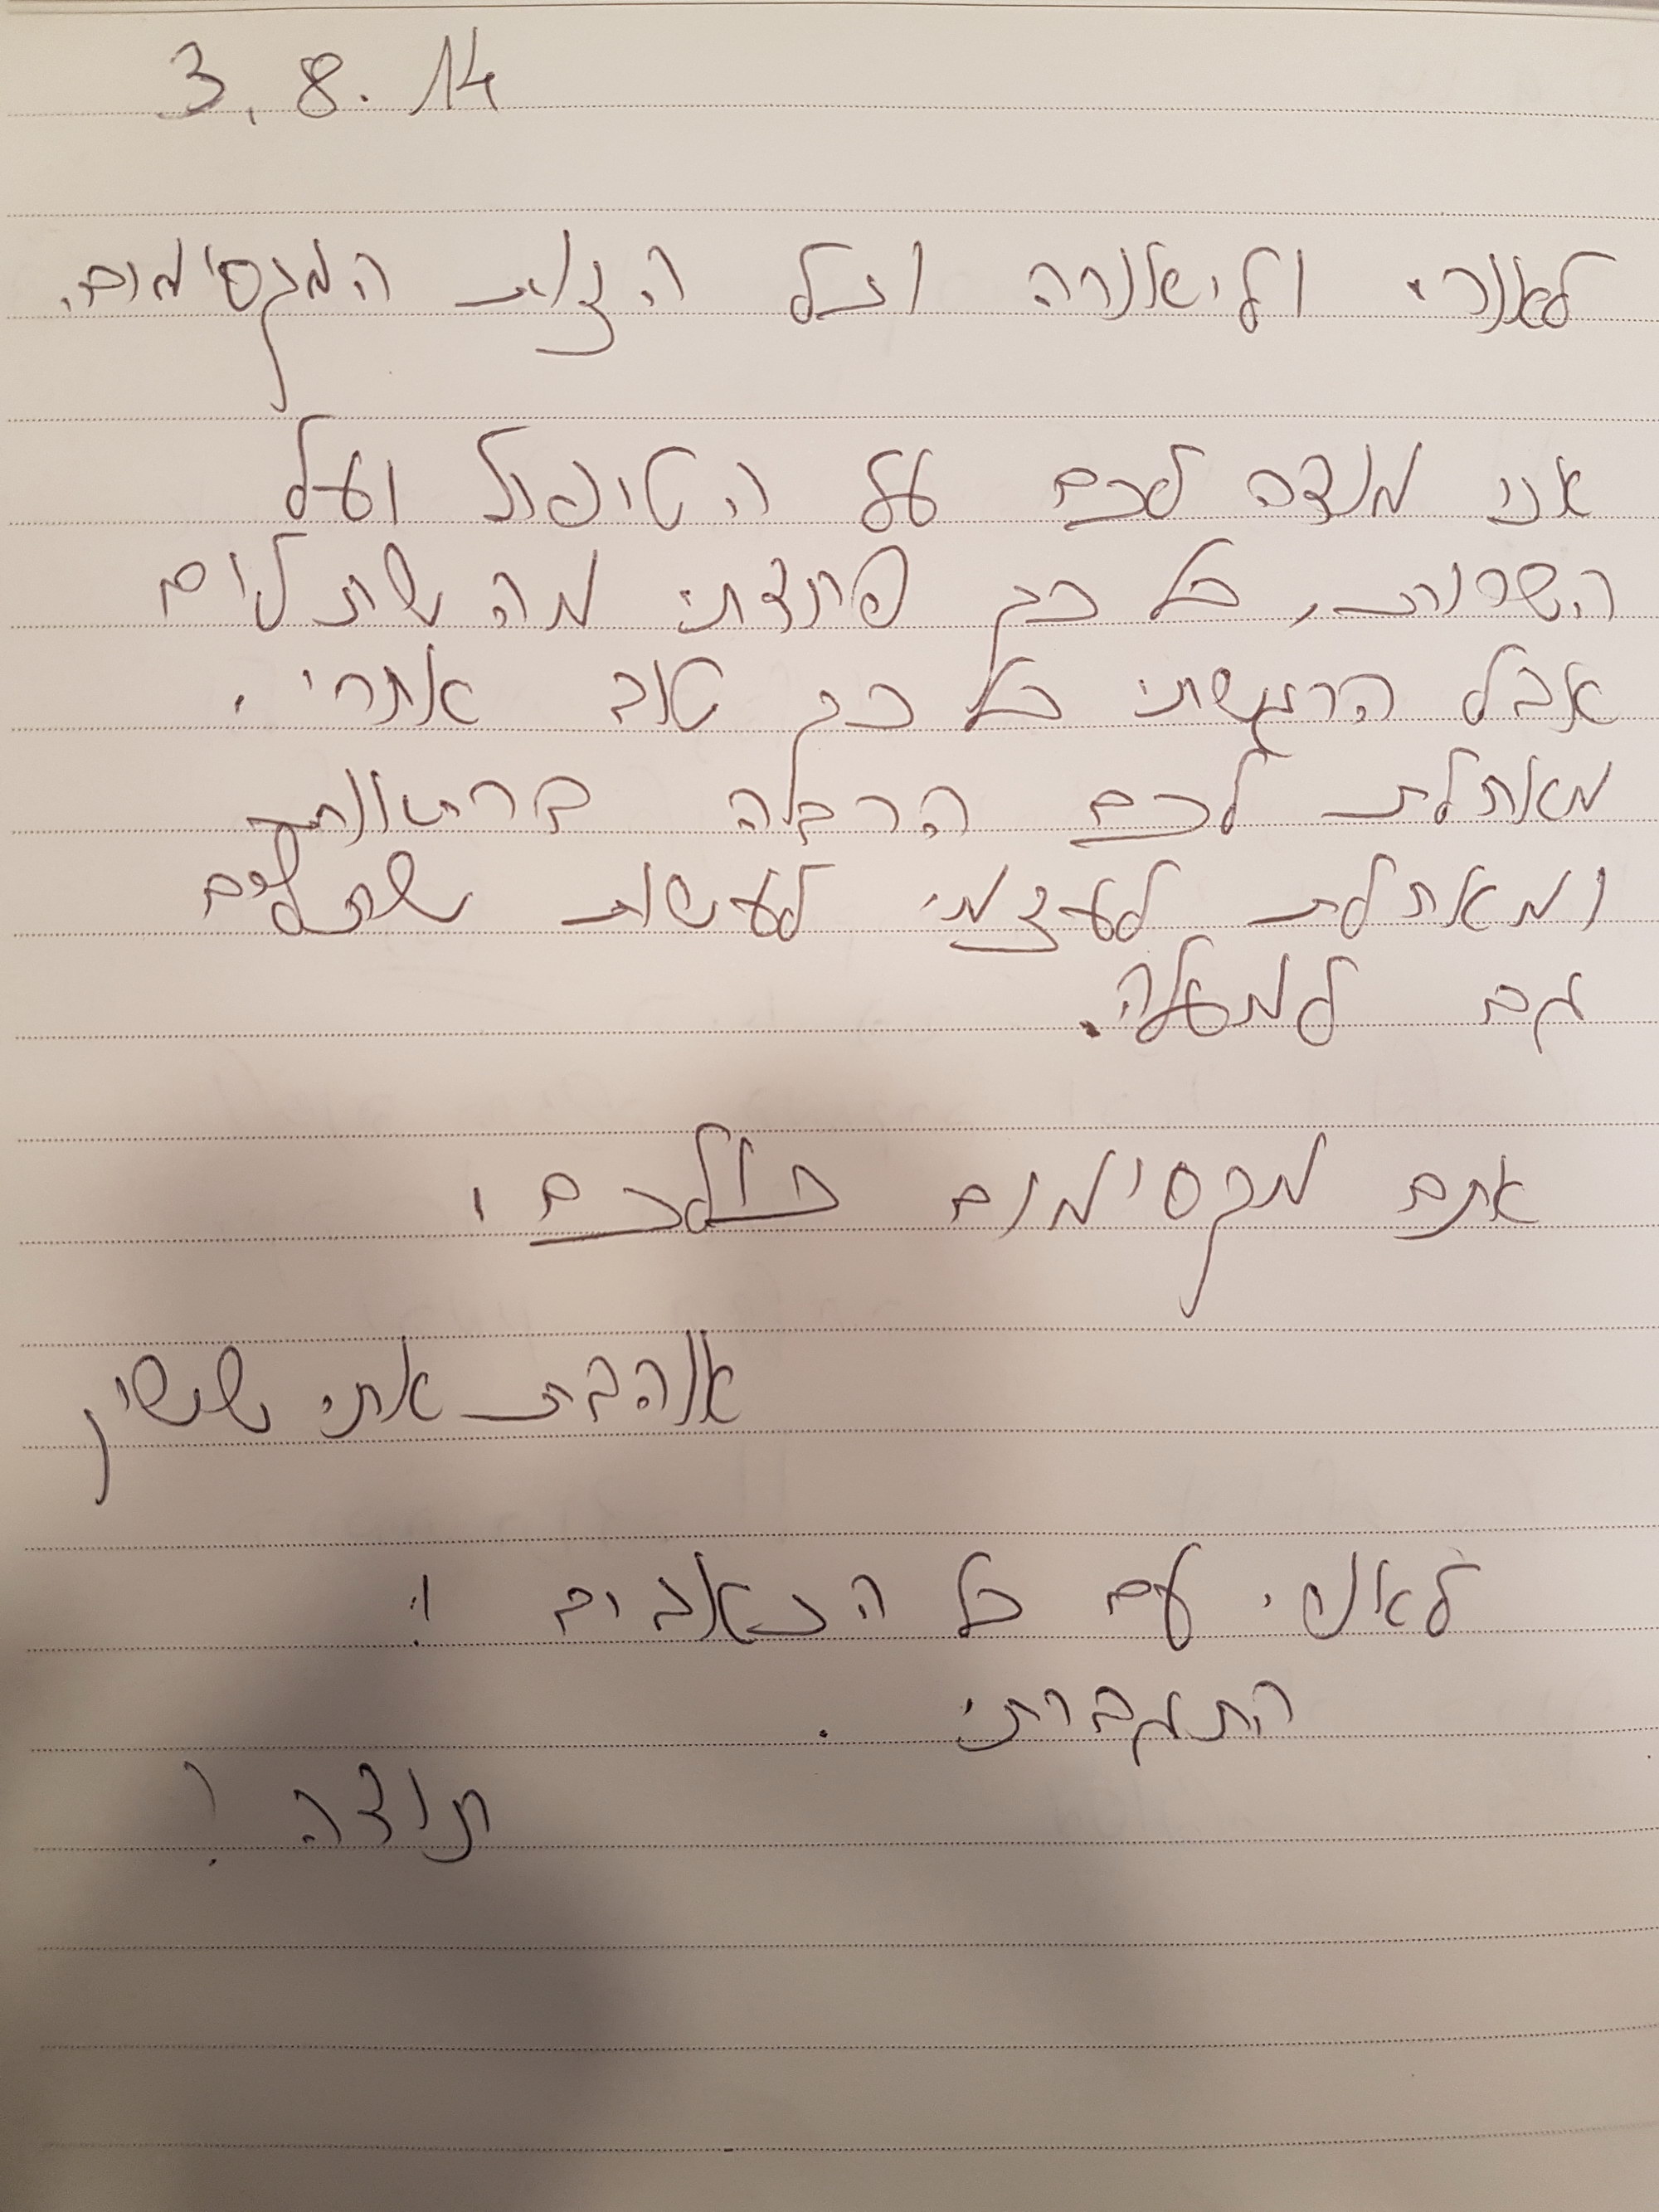 3.8.14
לאורי וליאורה וכל הצוות המקסימום.
אני מודה לכם על הטיפול ועל
השרות, כל כך פחדתי מה שתלים
אבל הרגשתי כל כך טוב אחרי.
מאחלת לכם הרבה בריאות
ומאחלת לעצמי לעשות שתלים
גם למעלה.
אתם מקסימום כולכם!
אוהבת אתי ששון
עם כל הכאבים!
התגברתי.
תודה!